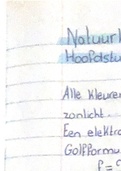 Natuurk
Hoofdstu
Alle kleuren
zonlicht.
Een elektro
Golfformu